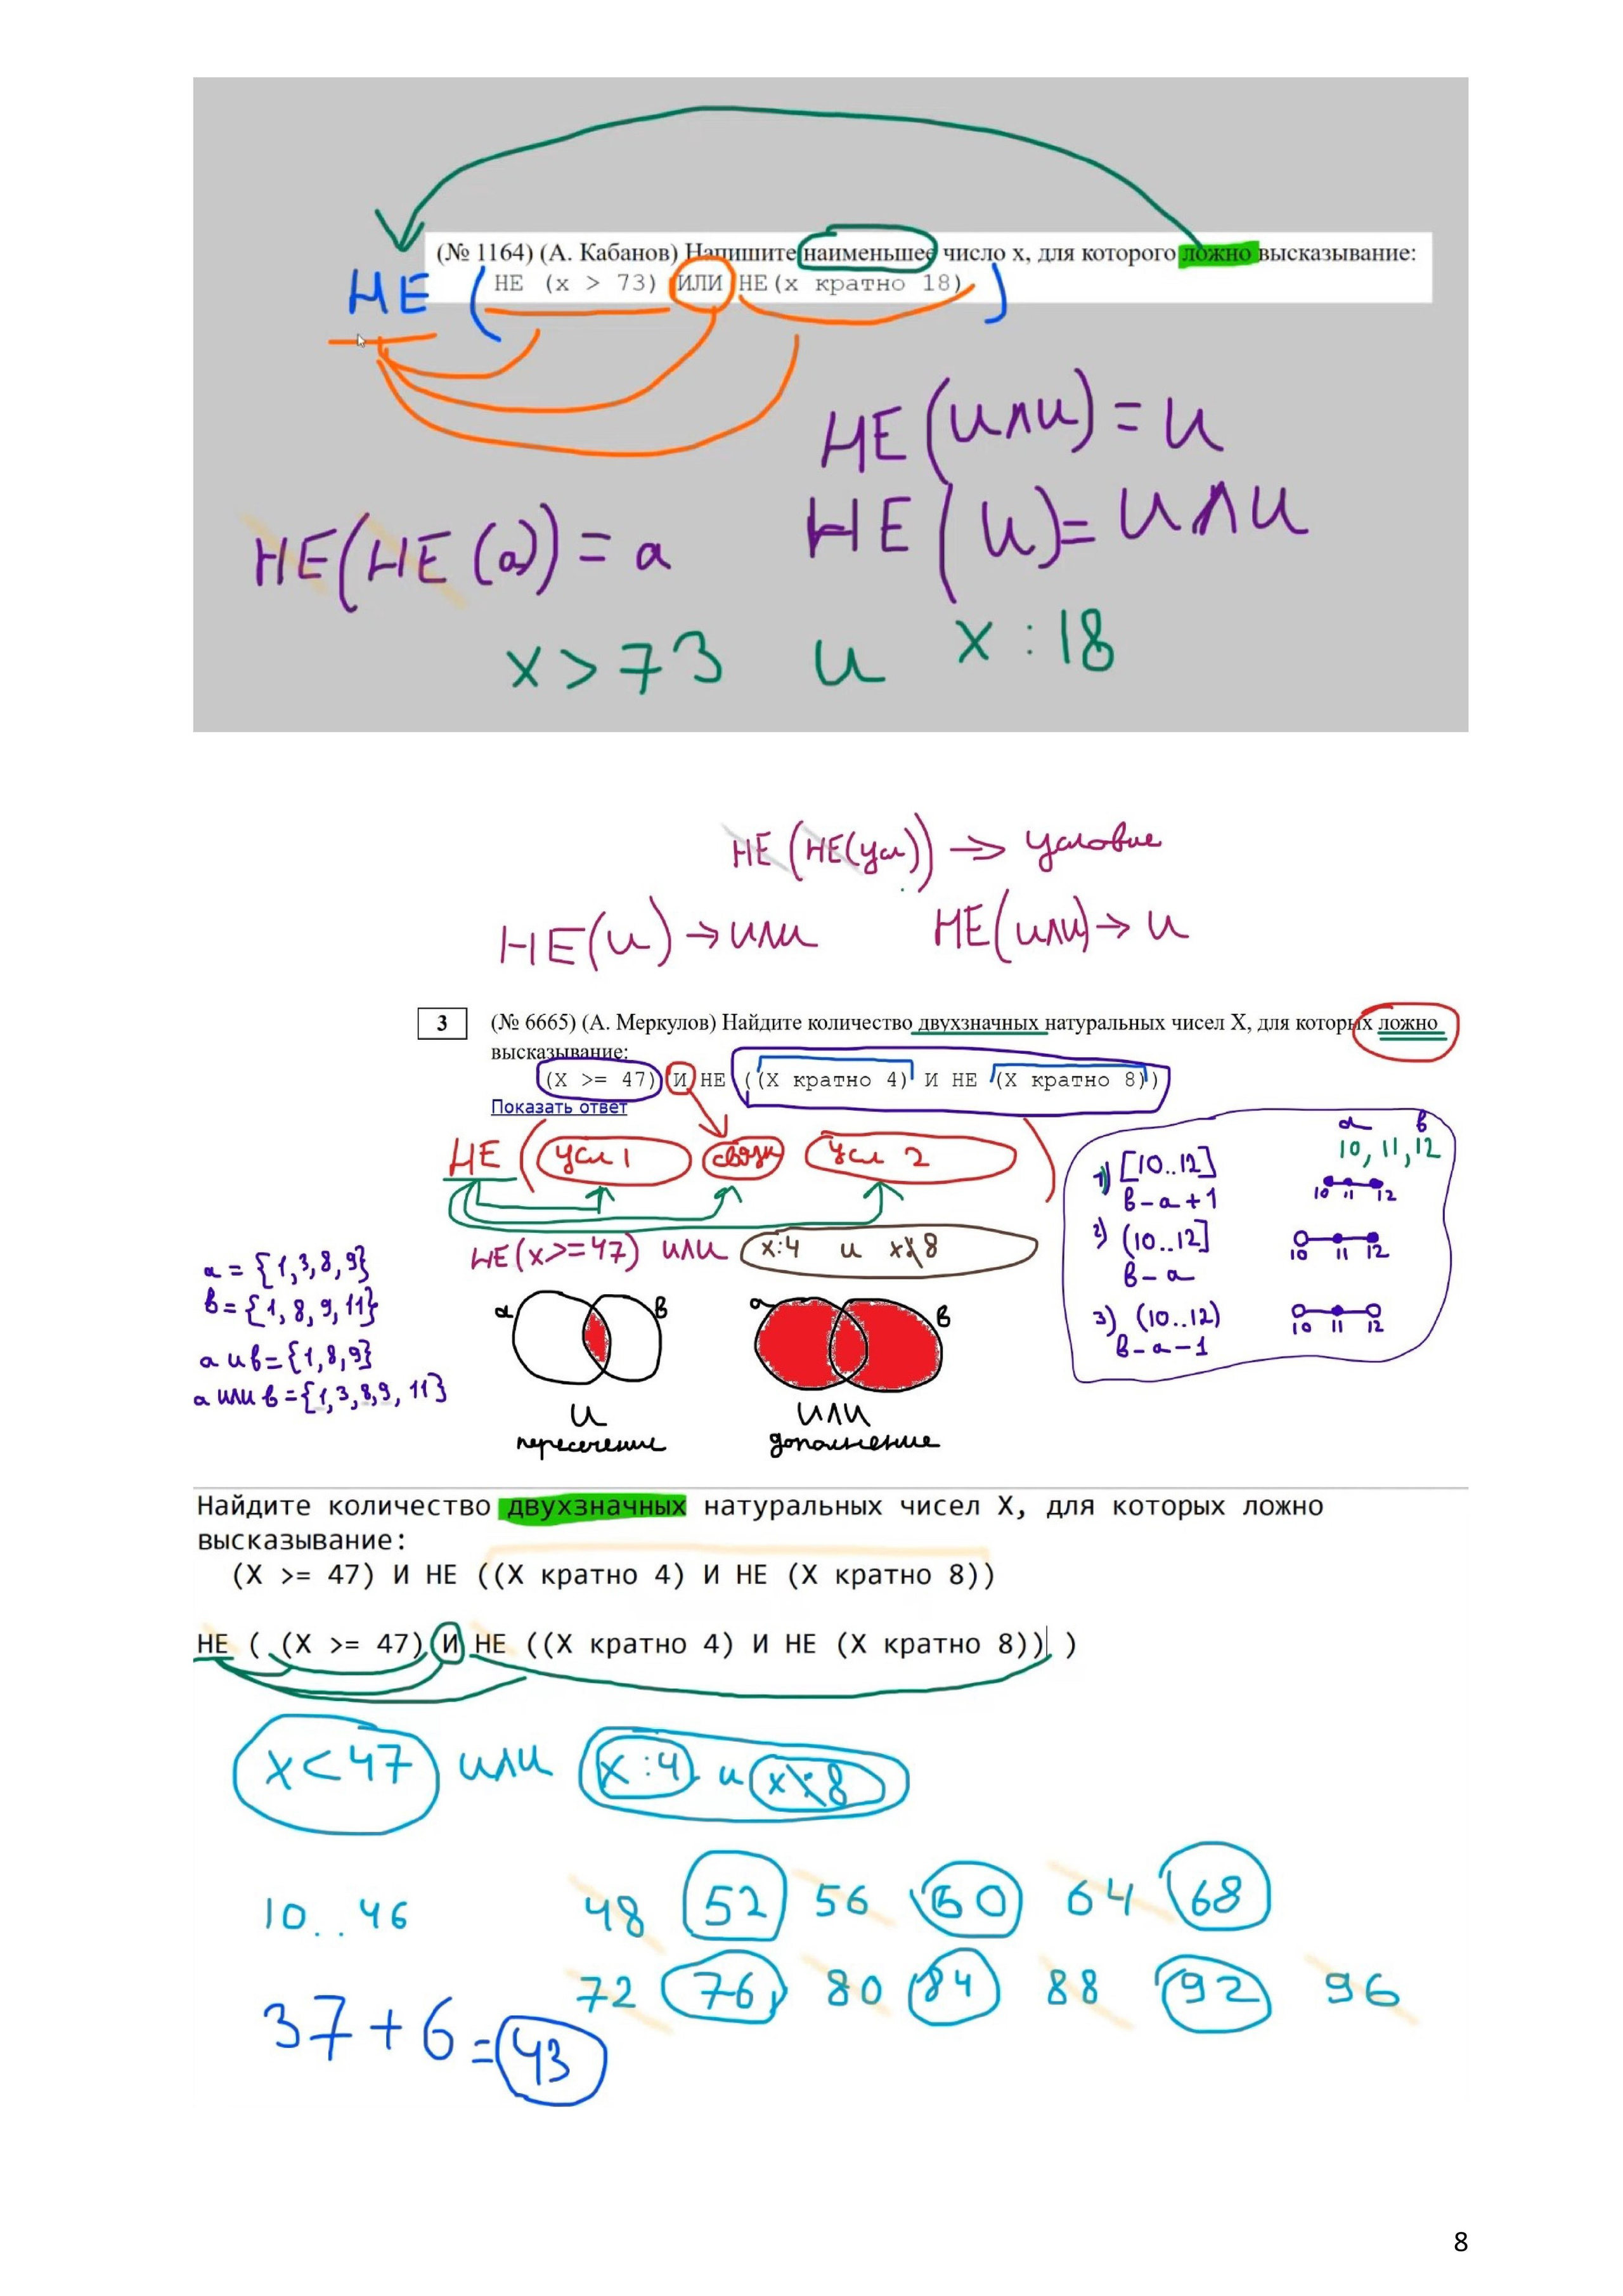 (№ 1164) (А. Кабанов) Напишите наименьшее число x, для которого ложно высказывание:
НЕ ( НЕ (x > 73) ИЛИ НЕ(x кратно 18) )
НЕ(или) = и
НЕ(и) = или
НЕ(НЕ(а)) = а
x > 73 и x : 18
НЕ(НЕ(усл)) → условие
НЕ(и) → или НЕ(или) → и
3 (№ 6665) (А. Меркулов) Найдите количество двухзначных натуральных чисел X, для которых ложно
высказывание:
(X >= 47) И НЕ ((X кратно 4) И НЕ (X кратно 8))
Показать ответ
НЕ ( усл 1 связк усл 2 )
НЕ(x>=47) или x:4 и x⋮8
а = {1,3,8,9}
в = {1, 8, 9, 11}
а и в = {1,8,9}
а или в = {1,3,8,9, 11}
а в
а в
и
или
пересечение
дополнение
а в
10, 11, 12
1) [10..12]
10 11 12
в – а + 1
2) (10..12]
10 11 12
в – а
3) (10..12)
10 11 12
в – а – 1
Найдите количество двухзначных натуральных чисел X, для которых ложно
высказывание:
(X >= 47) И НЕ ((X кратно 4) И НЕ (X кратно 8))
НЕ ( (X >= 47) И НЕ ((X кратно 4) И НЕ (X кратно 8)) )
x < 47 или x : 4 и x⋮8
10..46
48 52 56 60 64 68
72 76 80 84 88 92 96
37 + 6 = 43
8